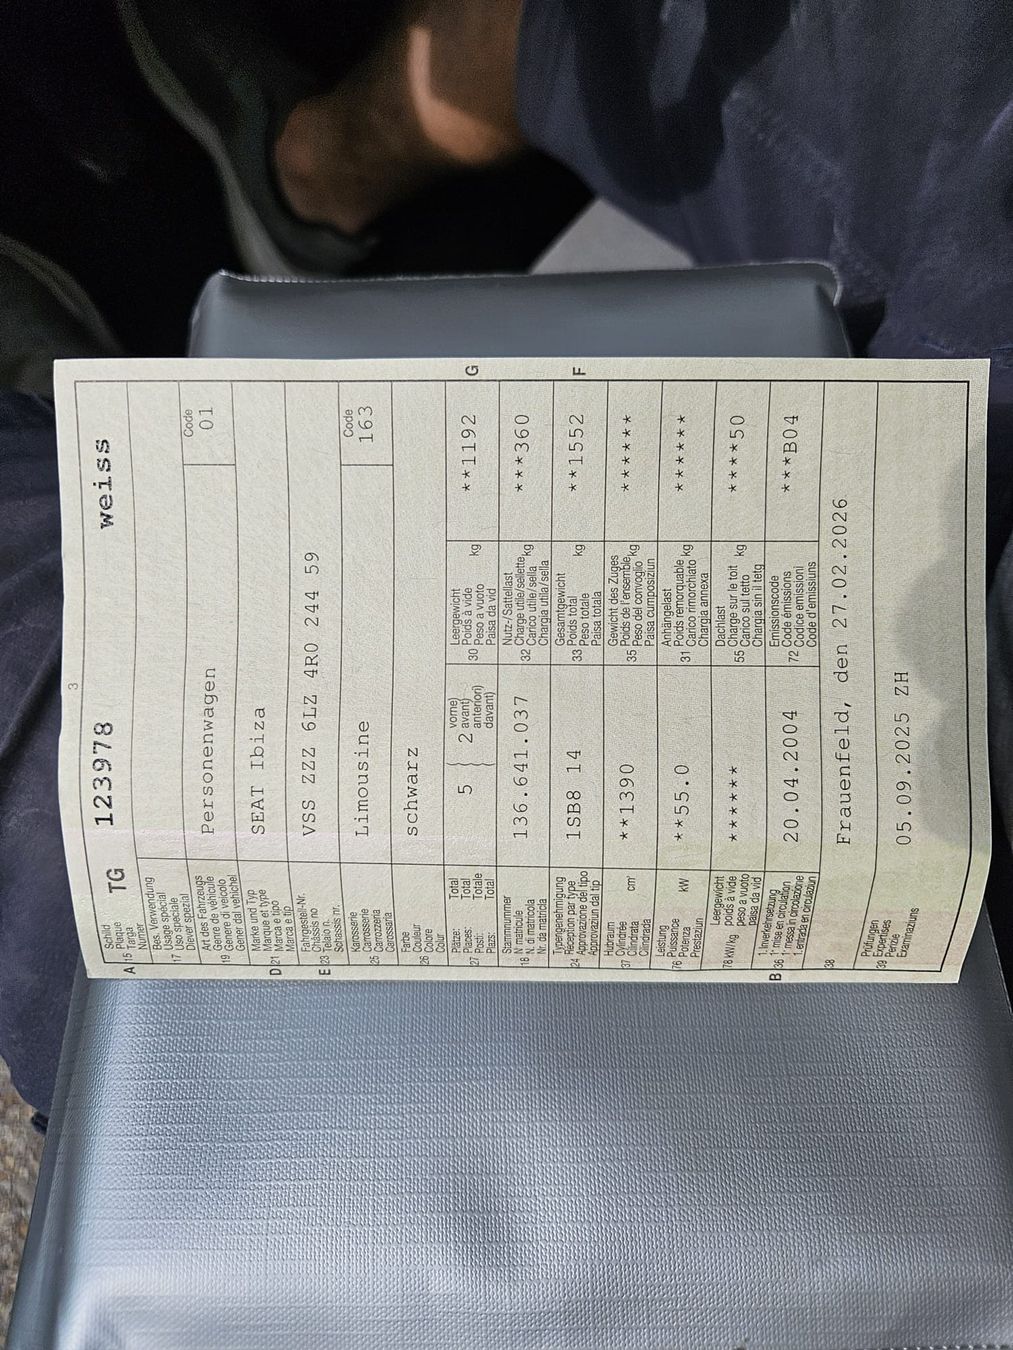 3
A 15 Schild Plaque Targa Numer TG 123978 weiss
17 Bes. Verwendung
Usage spécial
Uso speciale
Diever spezial
19 Art des Fahrzeugs
Genre de véhicule
Genere di veicolo
Gener dal vehichel
Personenwagen
Code
01
D 21 Marke und Typ
Marque et type
Marca e tipo
Marca e tip
SEAT Ibiza
E 23 Fahrgestell-Nr.
Châssis no
Telaio n.
Schassis nr.
VSS ZZZ 6LZ 4R0 244 59
25 Karosserie
Carrosserie
Carrozzeria
Carossaria
Limousine
Code
163
26 Farbe
Couleur
Colore
Colur
schwarz
27 Plätze: Total
Places: Total
Posti: Totale
Plazs: Total
5
2
vorne)
avant)
anteriori)
davant)
30 Leergewicht
Poids à vide
Peso a vuoto
Paisa da vid
kg
**1192
G
18 Stammnummer
N matricule
N. di matricola
N. da matricla
136.641.037
32 Nutz-/Sattellast
Charge utile/sellette
Carico utile/sella
Chargia utila/sella
kg
***360
24 Typengenehmigung
Réception par type
Approvazione del tipo
Approvaziun dal tip
1SB8 14
33 Gesamtgewicht
Poids total
Peso totale
Paisa totala
kg
**1552
F
37 Hubraum
Cylindrée
Cilindrata
Cilindrada
cm³
**1390
35 Gewicht des Zuges
Poids de l'ensemble
Peso del convoglio
Paisa cumposiziun
kg
******
76 Leistung
Puissance
Potenza
Prestaziun
kW
**55.0
31 Anhängelast
Poids remorquable
Carico rimorchiato
Chargia annexa
kg
******
78 kW/kg Leergewicht
poids à vide
peso a vuoto
paisa da vid
******
55 Dachlast
Charge sur le toit
Carico sul tetto
Chargia sin il tetg
kg
****50
B 36 1. Inverkehrsetzung
1re mise en circulation
1a messa in circolazione
1. entrada en circulaziun
20.04.2004
72 Emissionscode
Code émissions
Codice emissioni
Code d'emissiuns
***B04
38
Frauenfeld, den 27.02.2026
39 Prüfungen
Expertises
Perizie
Examinaziuns
05.09.2025 ZH